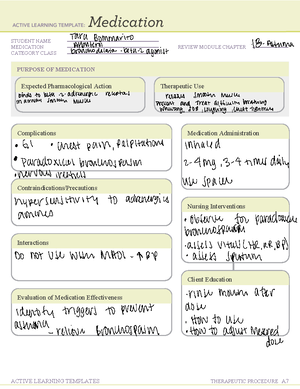 ACTIVE LEARNING TEMPLATE: Medication
STUDENT NAME Tara Bommarito
MEDICATION Albuterol
CATEGORY CLASS bronchodilator - beta-2 agonist
REVIEW MODULE CHAPTER 18. Asthma
PURPOSE OF MEDICATION
Expected Pharmacological Action
binds to beta-2-adrenergic receptors
in airway smooth muscle
Therapeutic Use
relaxes smooth muscle
prevent and treat difficulty breathing
wheezing, SOB, coughing, chest tightness
Complications
• GI • chest pain, palpitations
• Paradoxical bronchospasm
• nervous
Medication Administration
inhaled
2-4mg, 3-4 times daily
use spacer
Contraindications/Precautions
hypersensitivity to adrenergics
amines
Nursing Interventions
• observe for paradoxical
bronchospasm
• assess vitals (HR, BP)
• assess sputum
Interactions
Do not use with MAOI - ↑BP
Client Education
- rinse mouth after
dose
• How to use
• How to adjust missed
dose
Evaluation of Medication Effectiveness
identify triggers to prevent
asthma
- relieve bronchospasm
ACTIVE LEARNING TEMPLATES
THERAPEUTIC PROCEDURE A7